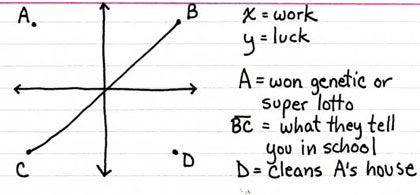 A
B
C
D
x = work
y = luck
A = won genetic or
super lotto
BC = what they tell
you in school
D = cleans A's house